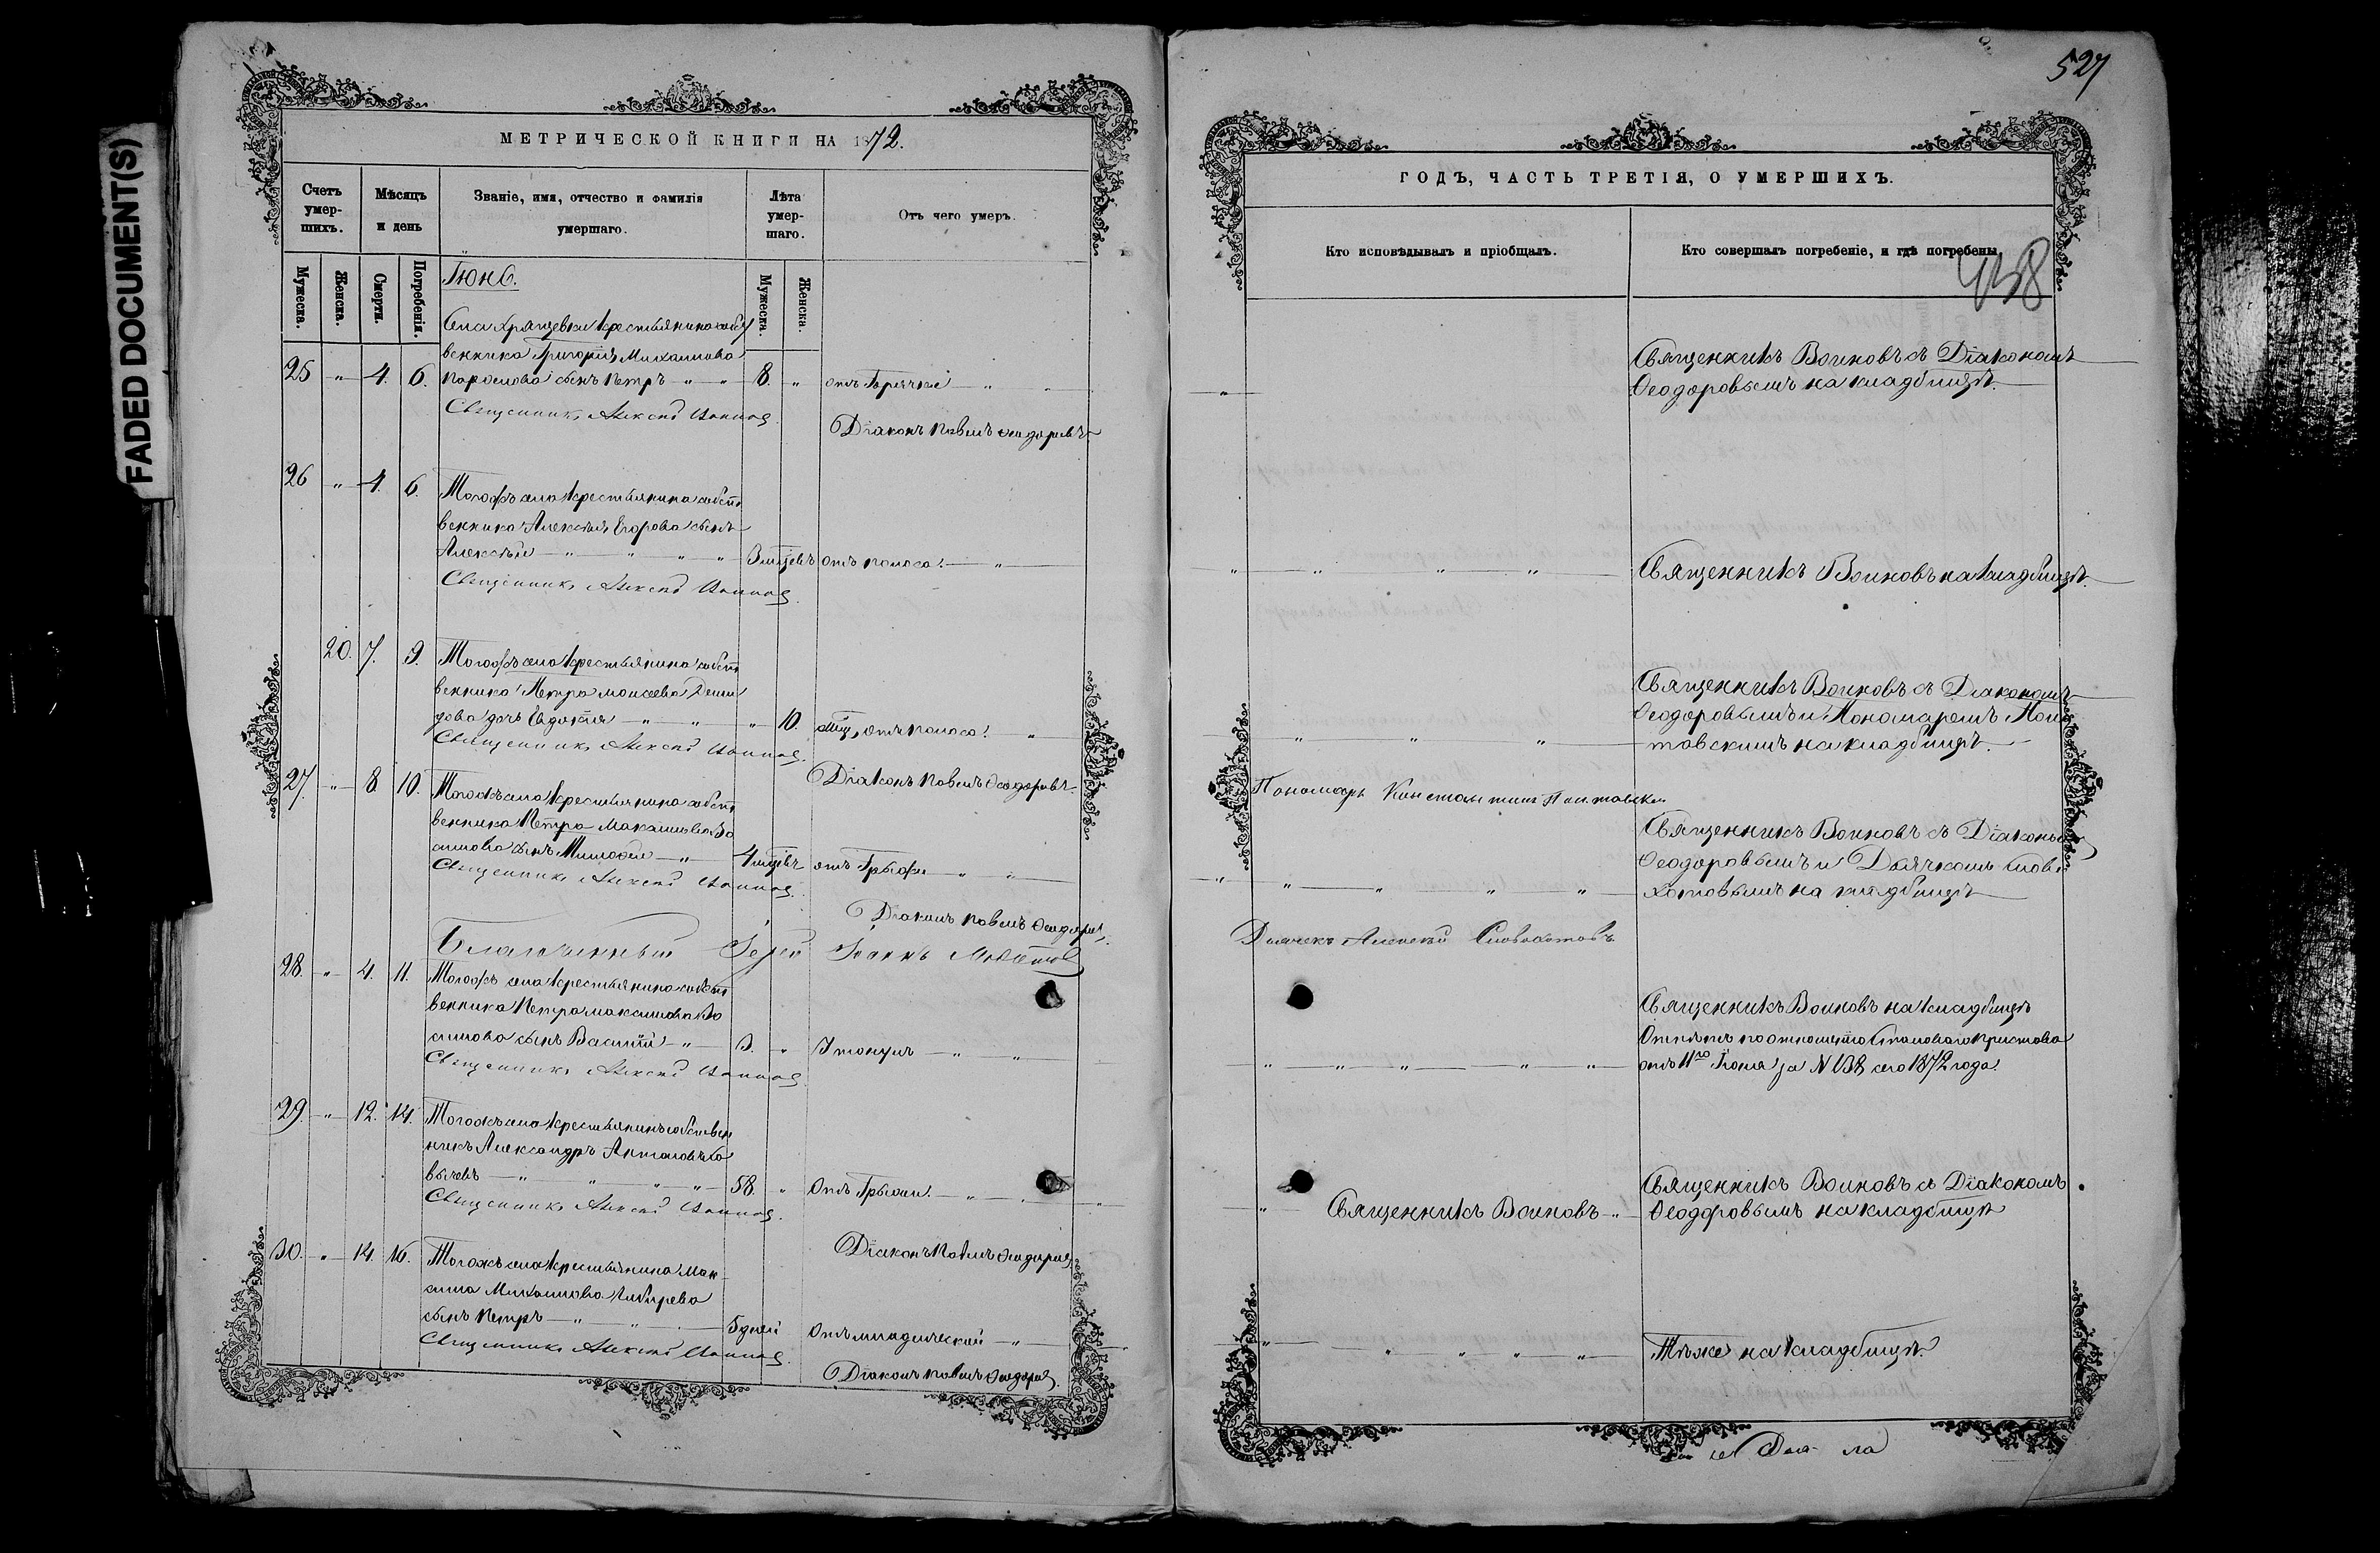 FADED DOCUMENT(S)
МЕТРИЧЕСКОЙ КНИГИ НА 1872.
Счетъ умер-шихъ.
Мѣсяцъ и день
Званіе, имя, отчество и фамилія умершаго.
Лѣта умер-шаго.
Отъ чего умеръ.
Мужеска.
Женска.
Смерти.
Погребенія.
Мужеска.
Женска.
Іюнь.
Села Хрящевки крестьянина собст
венника Григорія Михаилова
25 " 4. 6. сынъ Петръ " " 8. " отъ Горячки " "
Священникъ Алексѣй Воиновъ
Діаконъ Павелъ Ѳеодоровъ
26 " 4. 6. Тогожъ села крестьянина собст
венника Алексѣя Егорова сынъ
Алексѣй " " " " 3 мѣсяцевъ отъ поноса. "
Священникъ Алексѣй Воиновъ.
20. 7. 9. Тогожъ села крестьянина собст
венника Петра Моисеева Деми
дова дочь Евдокія " " " 10. мѣс. отъ поноса. "
Священникъ Алексѣй Воиновъ.
Діаконъ Павелъ Ѳеодоровъ.
27. " 8. 10. Тогожъ села крестьянина собст
венника Петра Максимова
сынъ Тимоѳей " 4 мѣсяцевъ отъ Грыжи " "
Священникъ Алексѣй Воиновъ.
Діаконъ Павелъ Ѳеодоровъ.
Благочинный Іерей Іоаннъ
28. " 4. 11. Тогожъ села крестьянина собст
венника Петра Максимова
сынъ Василій " 3. " Утонулъ " "
Священникъ Алексѣй Воиновъ
29. " 12. 14. Тогожъ села крестьянинъ собствен
никъ Александръ Антоновъ
" " " " 58. " Отъ Грыжи. "
Священникъ Алексѣй Воиновъ.
Діаконъ Павелъ Ѳеодоровъ.
30. " 14. 16. Тогожъ села крестьянина Мак
сима Михаилова
сынъ Петръ " " 5 дней Отъ младенческой "
Священникъ Алексѣй Воиновъ.
Діаконъ Павелъ Ѳеодоровъ.
527
ГОДЪ, ЧАСТЬ ТРЕТІЯ, О УМЕРШИХЪ.
Кто исповѣдывалъ и пріобщалъ.
Кто совершалъ погребеніе, и гдѣ погребены.
Священникъ Воиновъ съ Діакономъ
Ѳеодоровымъ на кладбищѣ.
" " " " Священникъ Воиновъ на кладбищѣ.
Священникъ Воиновъ съ Діакономъ
Ѳеодоровымъ и Пономаремъ Пои
" " " товскимъ на кладбищѣ.
Пономарь Константинъ
Священникъ Воиновъ съ Діакономъ
Ѳеодоровымъ и Дьячкомъ Слово
" " " " " хотовымъ на кладбищѣ
Дьячекъ Алексѣй Словохотовъ
Священникъ Воиновъ на кладбищѣ
Отпѣтъ по отношенію Становаго Пристава
" " " " " отъ 11го Іюня за № 138 сего 1872 года.
Священникъ Воиновъ съ Діакономъ
" Священникъ Воиновъ " Ѳеодоровымъ на кладбищѣ
" " " " " Тѣже на кладбищѣ.